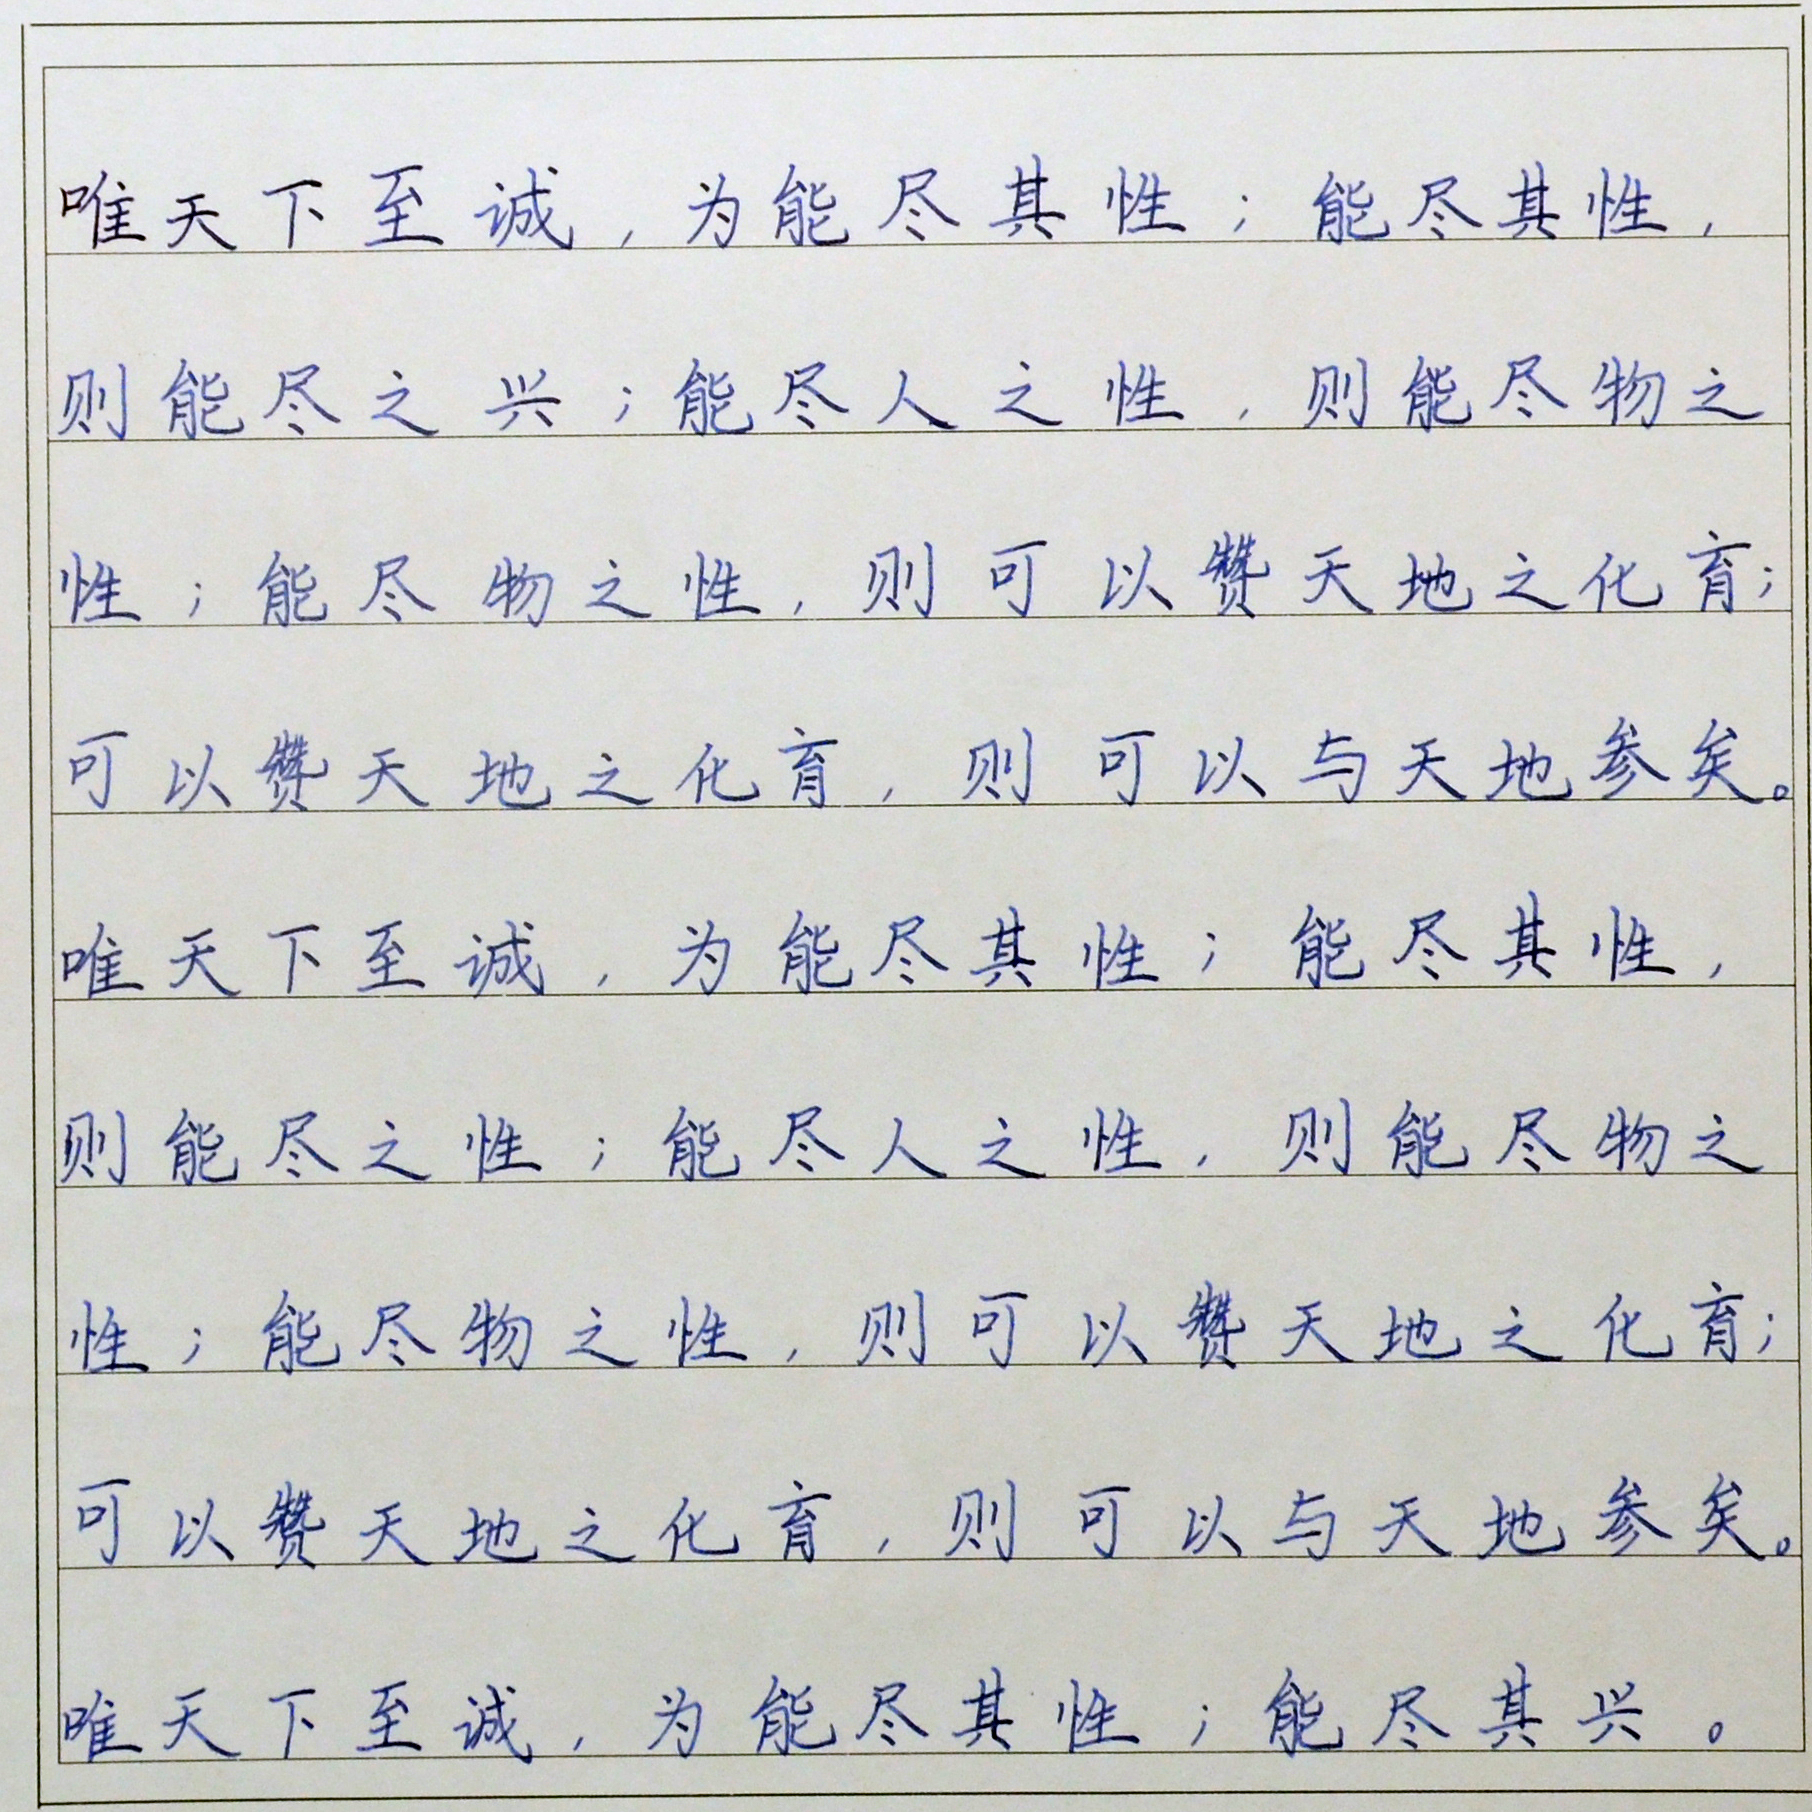 唯天下至诚，为能尽其性；能尽其性，
则能尽之兴；能尽人之性，则能尽物之
性；能尽物之性，则可以赞天地之化育；
可以赞天地之化育，则可以与天地参矣。
唯天下至诚，为能尽其性；能尽其性，
则能尽之性；能尽人之性，则能尽物之
性；能尽物之性，则可以赞天地之化育；
可以赞天地之化育，则可以与天地参矣。
唯天下至诚，为能尽其性；能尽其兴。